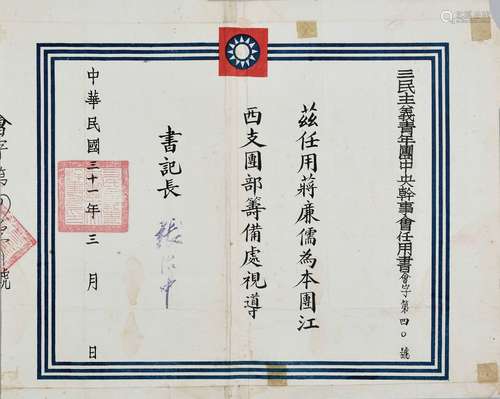 三民主義青年團中央幹事會任用書會字第四〇號
茲任用蔣廉儒為本團江
西支團部籌備處視導
書記長 張治中
中華民國三十一年三月 日